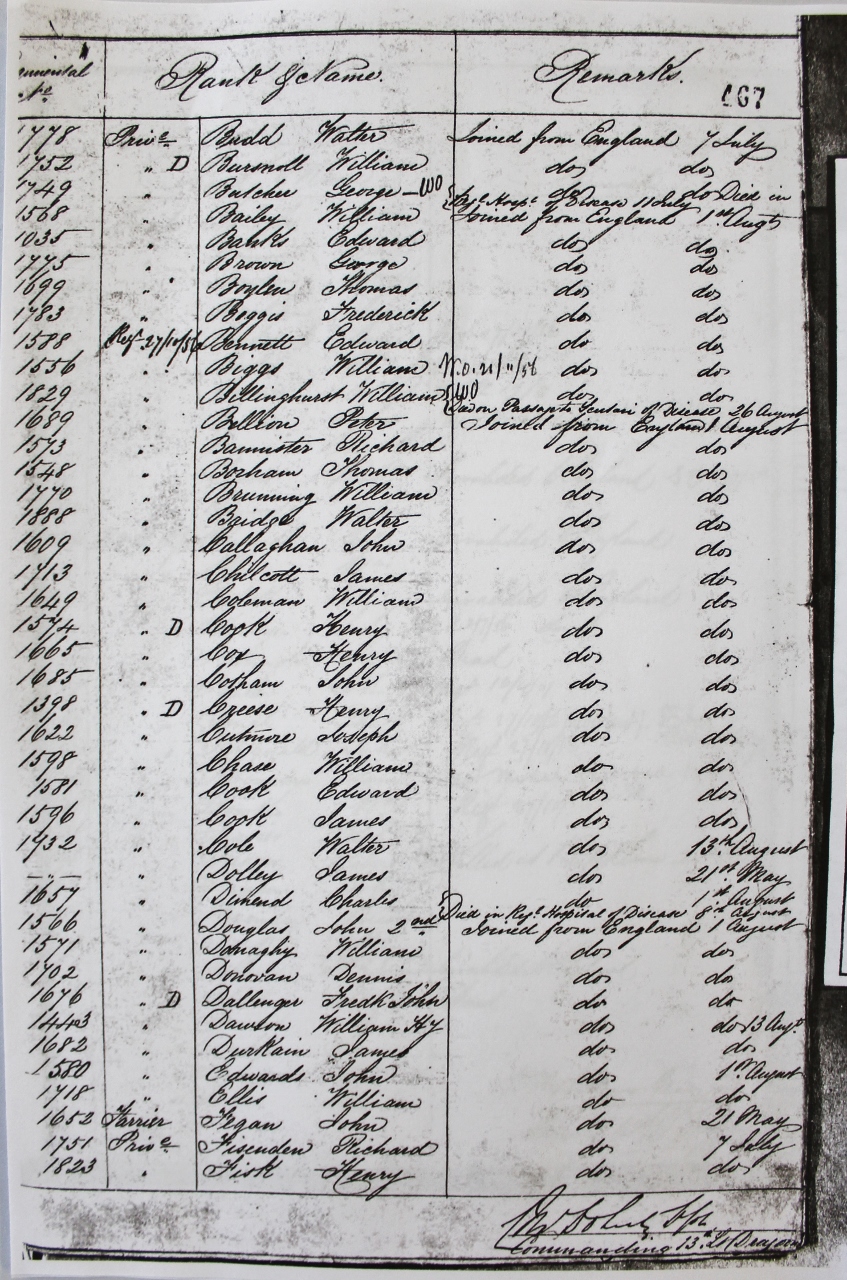 Rank & Name. Remarks.
No 467
1778 Prive Budd Walter Joined from England 7 July
1752 " D Bursnoll William do do
1749 " Butcher George - WO do do Died in
Regl Hospl of Disease 11 July
1568 " Bailey William Joined from England 1st Augt
1035 " Banks Edward do do
1775 " Brown George do do
1699 " Boylen Thomas do do
1783 " Boggis Frederick do do
1588 Bennett Edward do do
1556 " Biggs William W.O. 21/11/56 do do
1829 " Billinghurst William WO do do
of Disease 26 August
1689 " Peter Joined from England 1 August
1573 " Bannister Richard do do
1548 " Borham Thomas do do
1770 " Brunning William do do
1888 " Bridge Walter do do
1609 " Callaghan John do do
1713 " Chilcott James do do
1649 " Coleman William do do
1574 " D Cook Henry do do
1665 " Cox Henry do do
1685 " Cotham John do do
1398 " D Creese Henry do do
1622 " Cutmore Joseph do do
1598 " Chase William do do
1581 " Cook Edward do do
1596 " Cook James do do
1732 " Cole Walter do 13th August
-"- " Dolley James do 21st May
1657 " Dimend Charles do 1st August
Died in Regl Hospital of Disease 8th August
1566 " Douglas John 2nd Joined from England 1 August
1571 " Donaghy William do do
1702 " Donovan Dennis do do
1676 " D Dallenger Fredk John do do
1443 " Dawson William Hy do do 13 Augt
1682 " Durkain James do do
1580 " Edwards John do 1st August
1718 " Ellis William do do
1652 Farrier Fegan John do 21 May
1751 Prive Fisenden Richard do 7 July
1823 " Fisk Henry do do
Commanding 13th Lt Dragoons